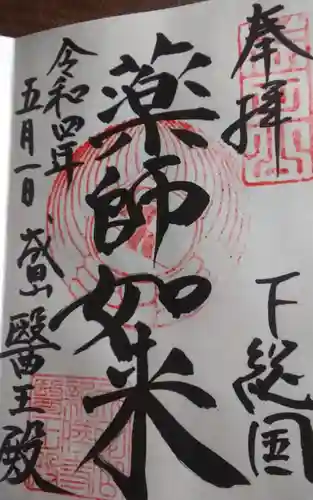 奉拝 下総国
薬師如来
令和四年
五月一日 成田山 醫王殿